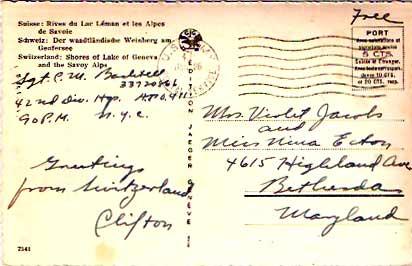 Suisse: Rives du Lac Léman et les Alpes
de Savoie
Schweiz: Der waadtländische Weinberg am
Genfersee
Switzerland: Shores of Lake of Geneva
and the Savoy Alps
Sgt C. M. Bechtell
42nd Div. Hqs. A.P.O. 411
90 P.M. N.Y.C.
Greetings
from Switzerland
Clifton
7141
EDITION JAEGER GENÈVE
Free
PORT
5 CTS.
Mrs. Violet Jacobs
and
Miss Nina Ecton
4615 Highland Ave
Bethesda
Maryland